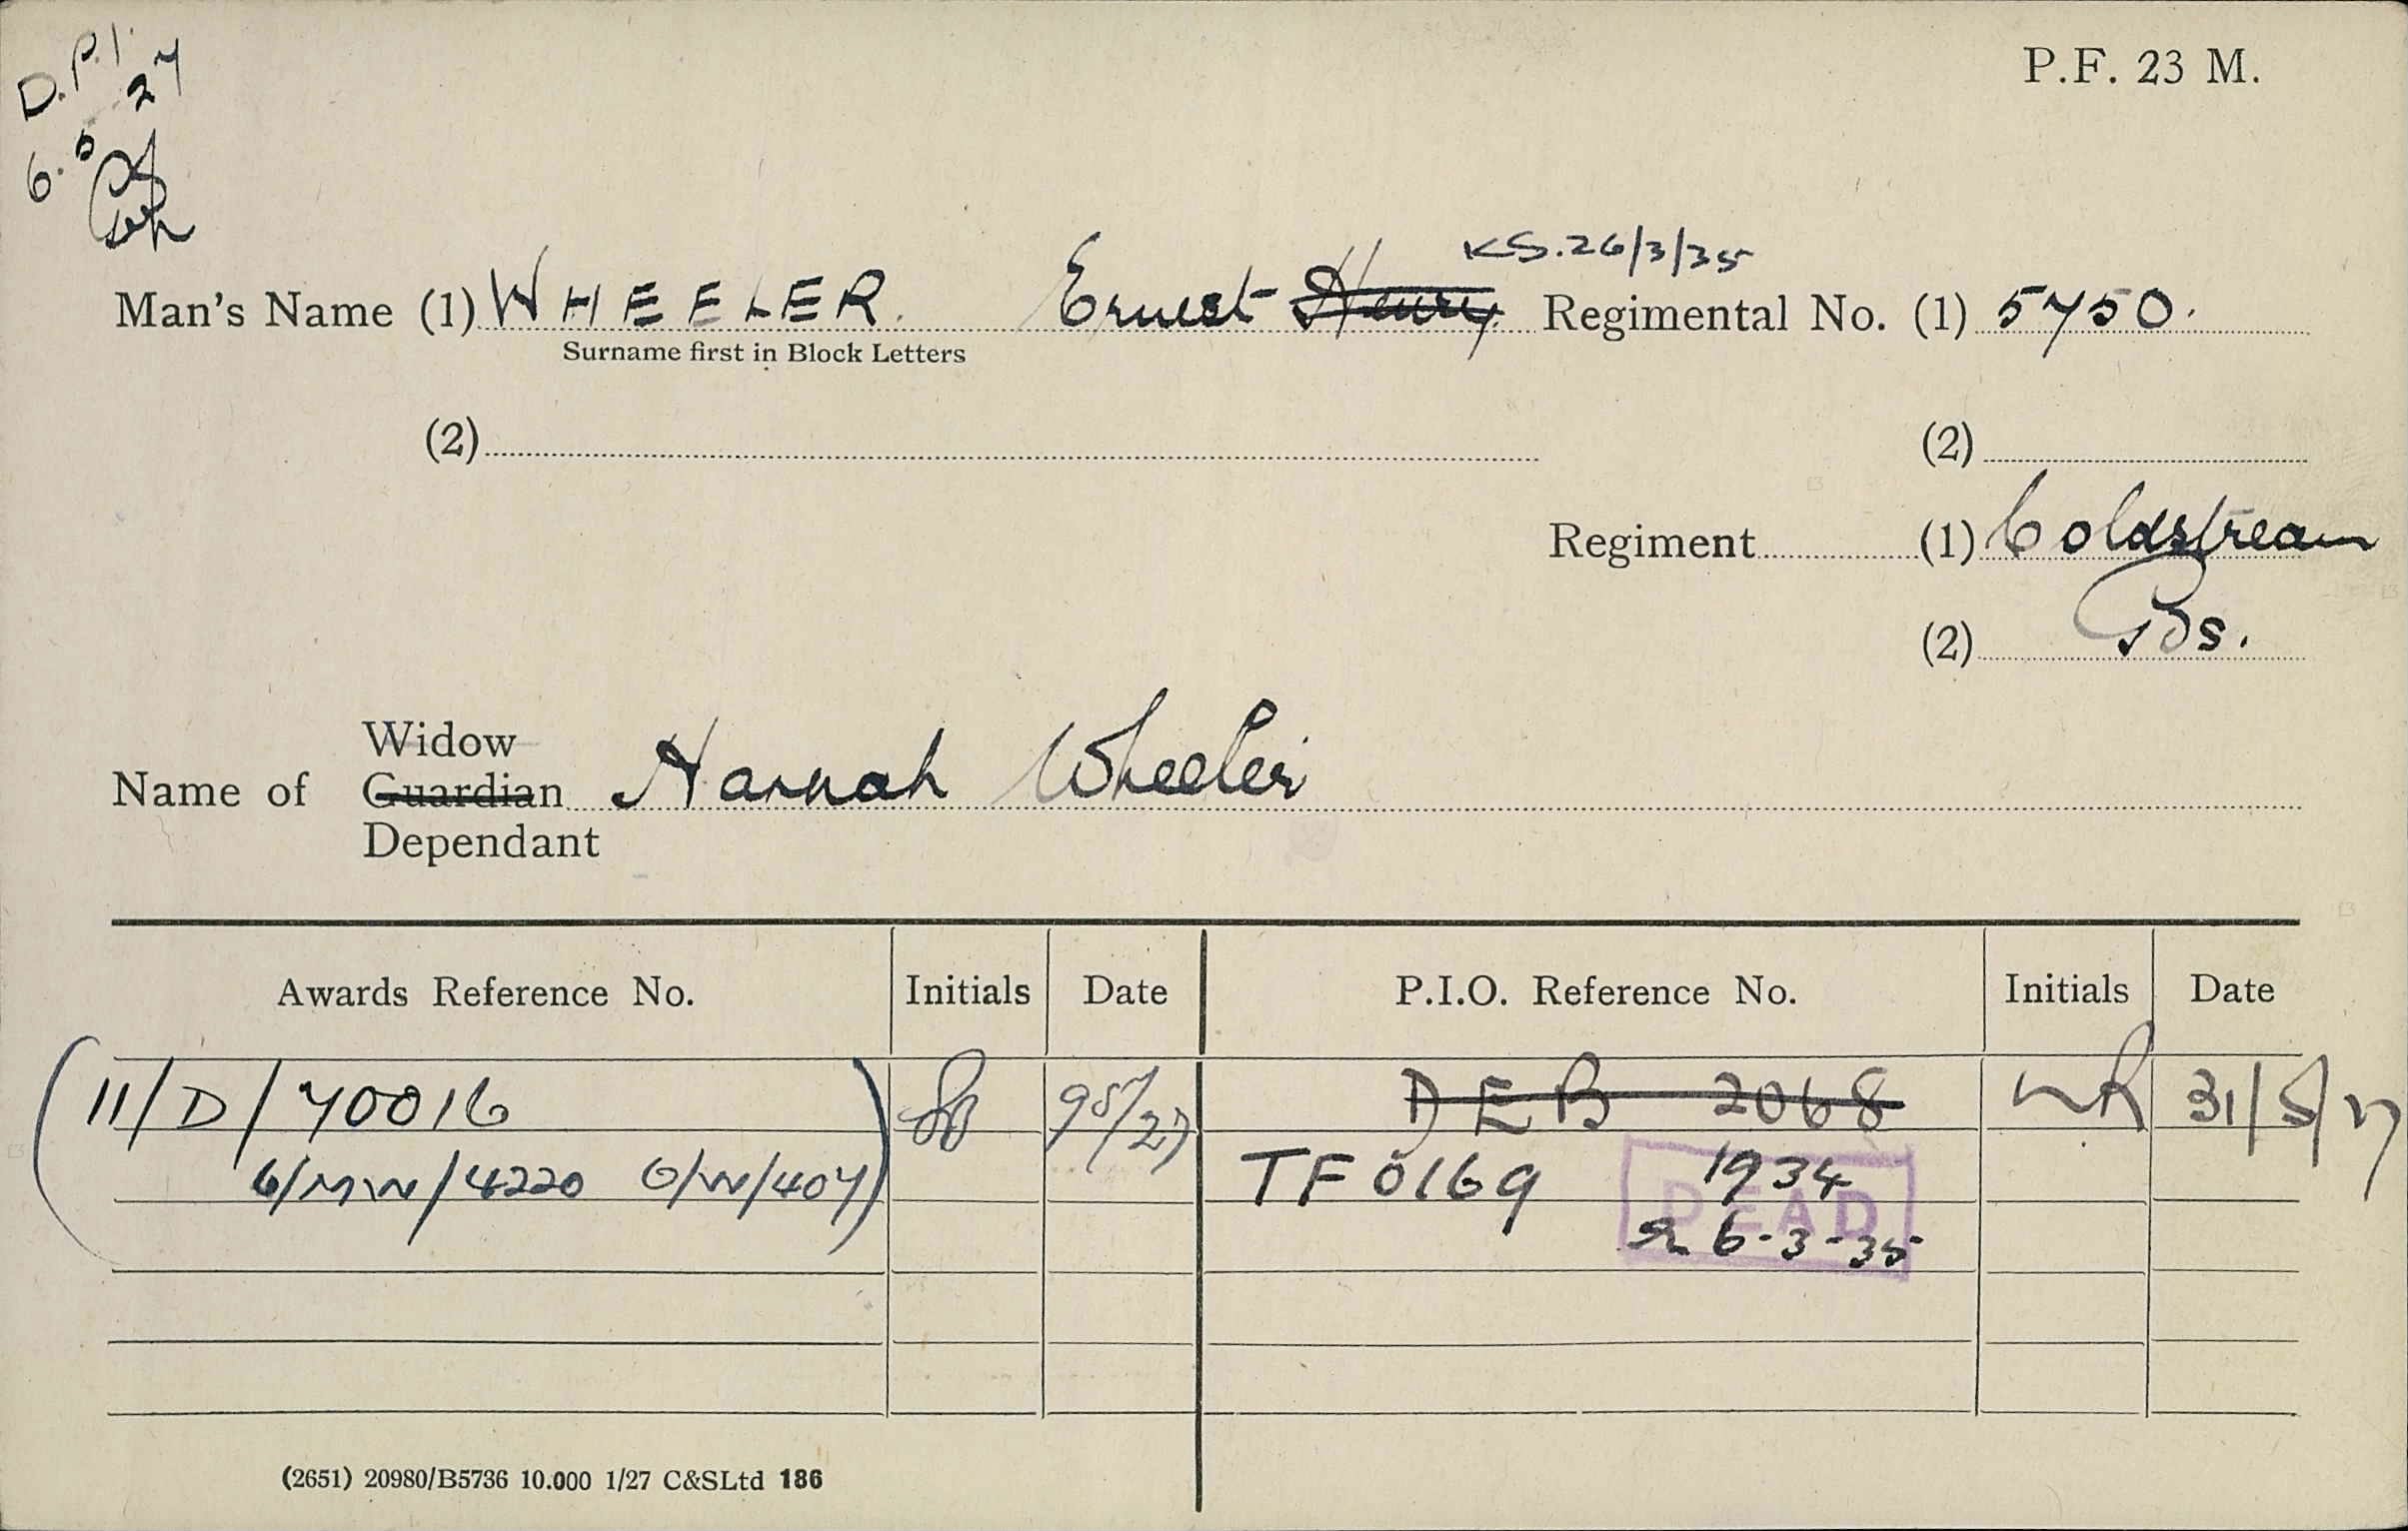 D.P.I.
6.5.27
P.F. 23 M.
KS.26/3/35
Man's Name (1) WHEELER. Ernest Henry Regimental No. (1) 5750.
Surname first in Block Letters
(2) (2)
Regiment (1) Coldstream
(2) Gds.
Widow
Name of Guardian Hannah Wheeler
Dependant
Awards Reference No. Initials Date P.I.O. Reference No. Initials Date
11/D/70016 DEB 2068 31/5/27
6/MW/4220 6/W/407 TF 0169 1934
DEAD
6-3-35
(2651) 20980/B5736 10.000 1/27 C&SLtd 186